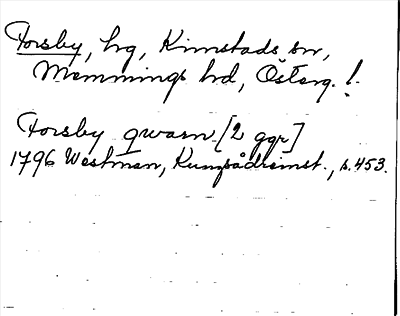 Forsby, hg, Kimstads sn,
Memmings hd, Österg. !
Forsby qwarn [2 ggr]
1796 Westman, Kungsådreinst., s. 453.